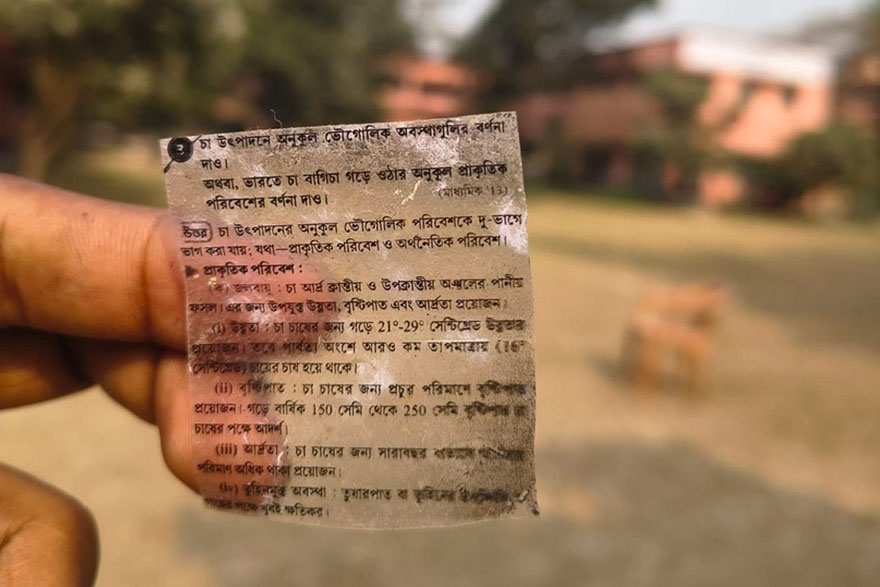 চা উৎপাদনে অনুকূল ভৌগোলিক অবস্থাগুলির বর্ণনা
দাও।
অথবা, ভারতে চা বাগিচা গড়ে ওঠার অনুকূল প্রাকৃতিক
পরিবেশের বর্ণনা দাও। (মাধ্যমিক '13)
উত্তর চা উৎপাদনের অনুকূল ভৌগোলিক পরিবেশকে দু-ভাগে
ভাগ করা যায়; যথা—প্রাকৃতিক পরিবেশ ও অর্থনৈতিক পরিবেশ।
▶ প্রাকৃতিক পরিবেশ :
জলবায়ু : চা আর্দ্র ক্রান্তীয় ও উপক্রান্তীয় অঞ্চলের পানীয়
ফসল। এর জন্য উপযুক্ত উষ্ণতা, বৃষ্টিপাত এবং আর্দ্রতা প্রয়োজন।
(i) উষ্ণতা : চা চাষের জন্য গড়ে 21°-29° সেন্টিগ্রেড উষ্ণতার
প্রয়োজন। তবে পার্বত্য অংশে আরও কম তাপমাত্রায় (16°
সেন্টিগ্রেড) চায়ের চাষ হয়ে থাকে।
(ii) বৃষ্টিপাত : চা চাষের জন্য প্রচুর পরিমাণে বৃষ্টিপাত
প্রয়োজন। গড়ে বার্ষিক 150 সেমি থেকে 250 সেমি বৃষ্টিপাত চা
চাষের পক্ষে আদর্শ।
(iii) আর্দ্রতা : চা চাষের জন্য সারাবছর বাতাসে
পরিমাণ অধিক থাকা প্রয়োজন।
(iv) তুহিনমুক্ত অবস্থা : তুষারপাত বা তুহিনের
পক্ষে খুবই ক্ষতিকর।